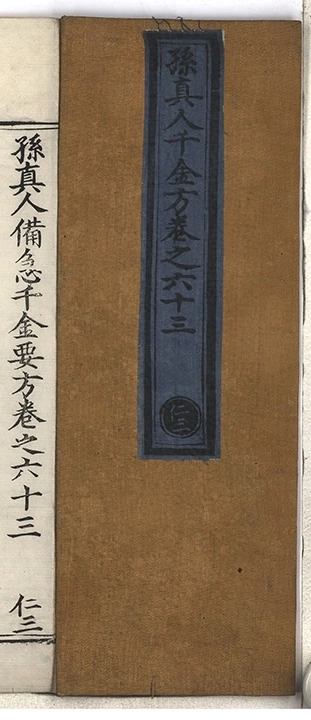 孫真人千金方卷之六十三
仁三
孫真人備急千金要方卷之六十三
仁三